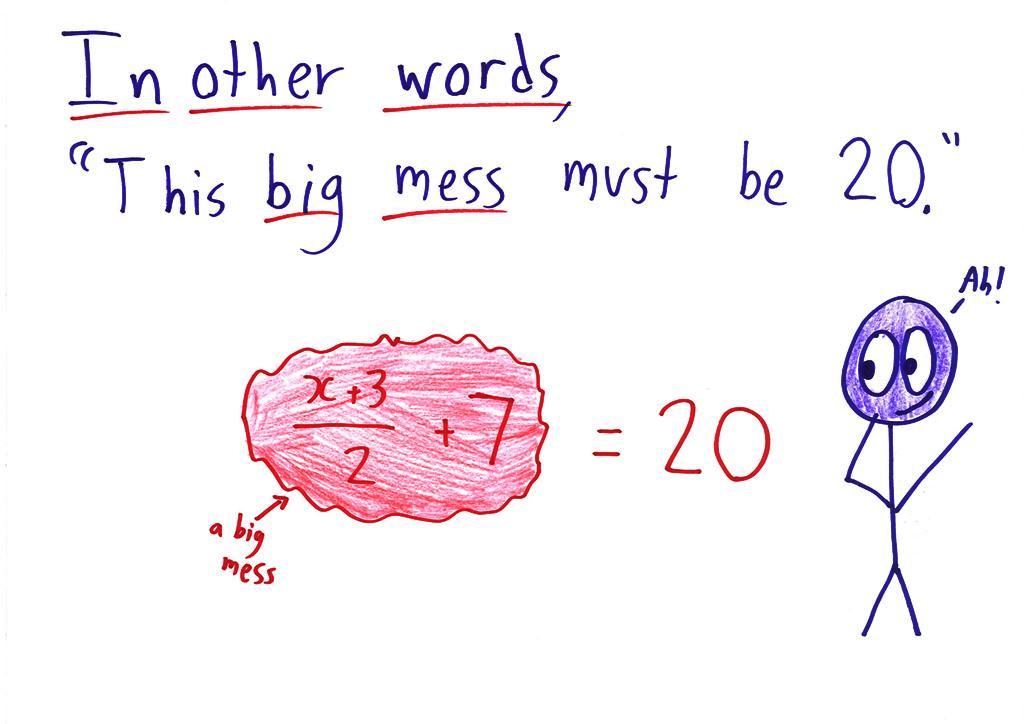 In other words,
"This big mess must be 20."
Ah!
x+3
2
+ 7 = 20
a big
mess